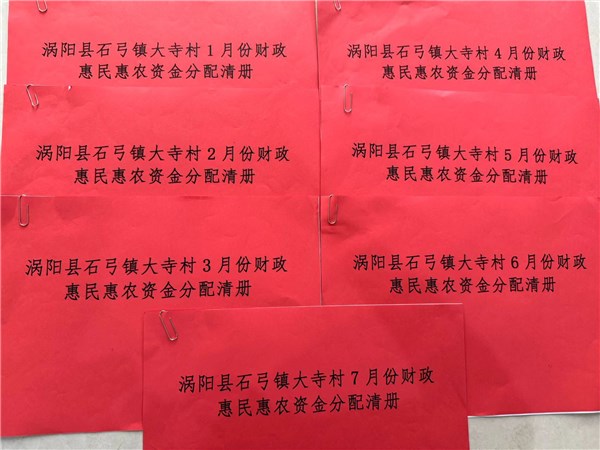 涡阳县石弓镇大寺村1月份财政
惠民惠农资金分配清册
涡阳县石弓镇大寺村2月份财政
惠民惠农资金分配清册
涡阳县石弓镇大寺村3月份财政
惠民惠农资金分配清册
涡阳县石弓镇大寺村4月份财政
惠民惠农资金分配清册
涡阳县石弓镇大寺村5月份财政
惠民惠农资金分配清册
涡阳县石弓镇大寺村6月份财政
惠民惠农资金分配清册
涡阳县石弓镇大寺村7月份财政
惠民惠农资金分配清册